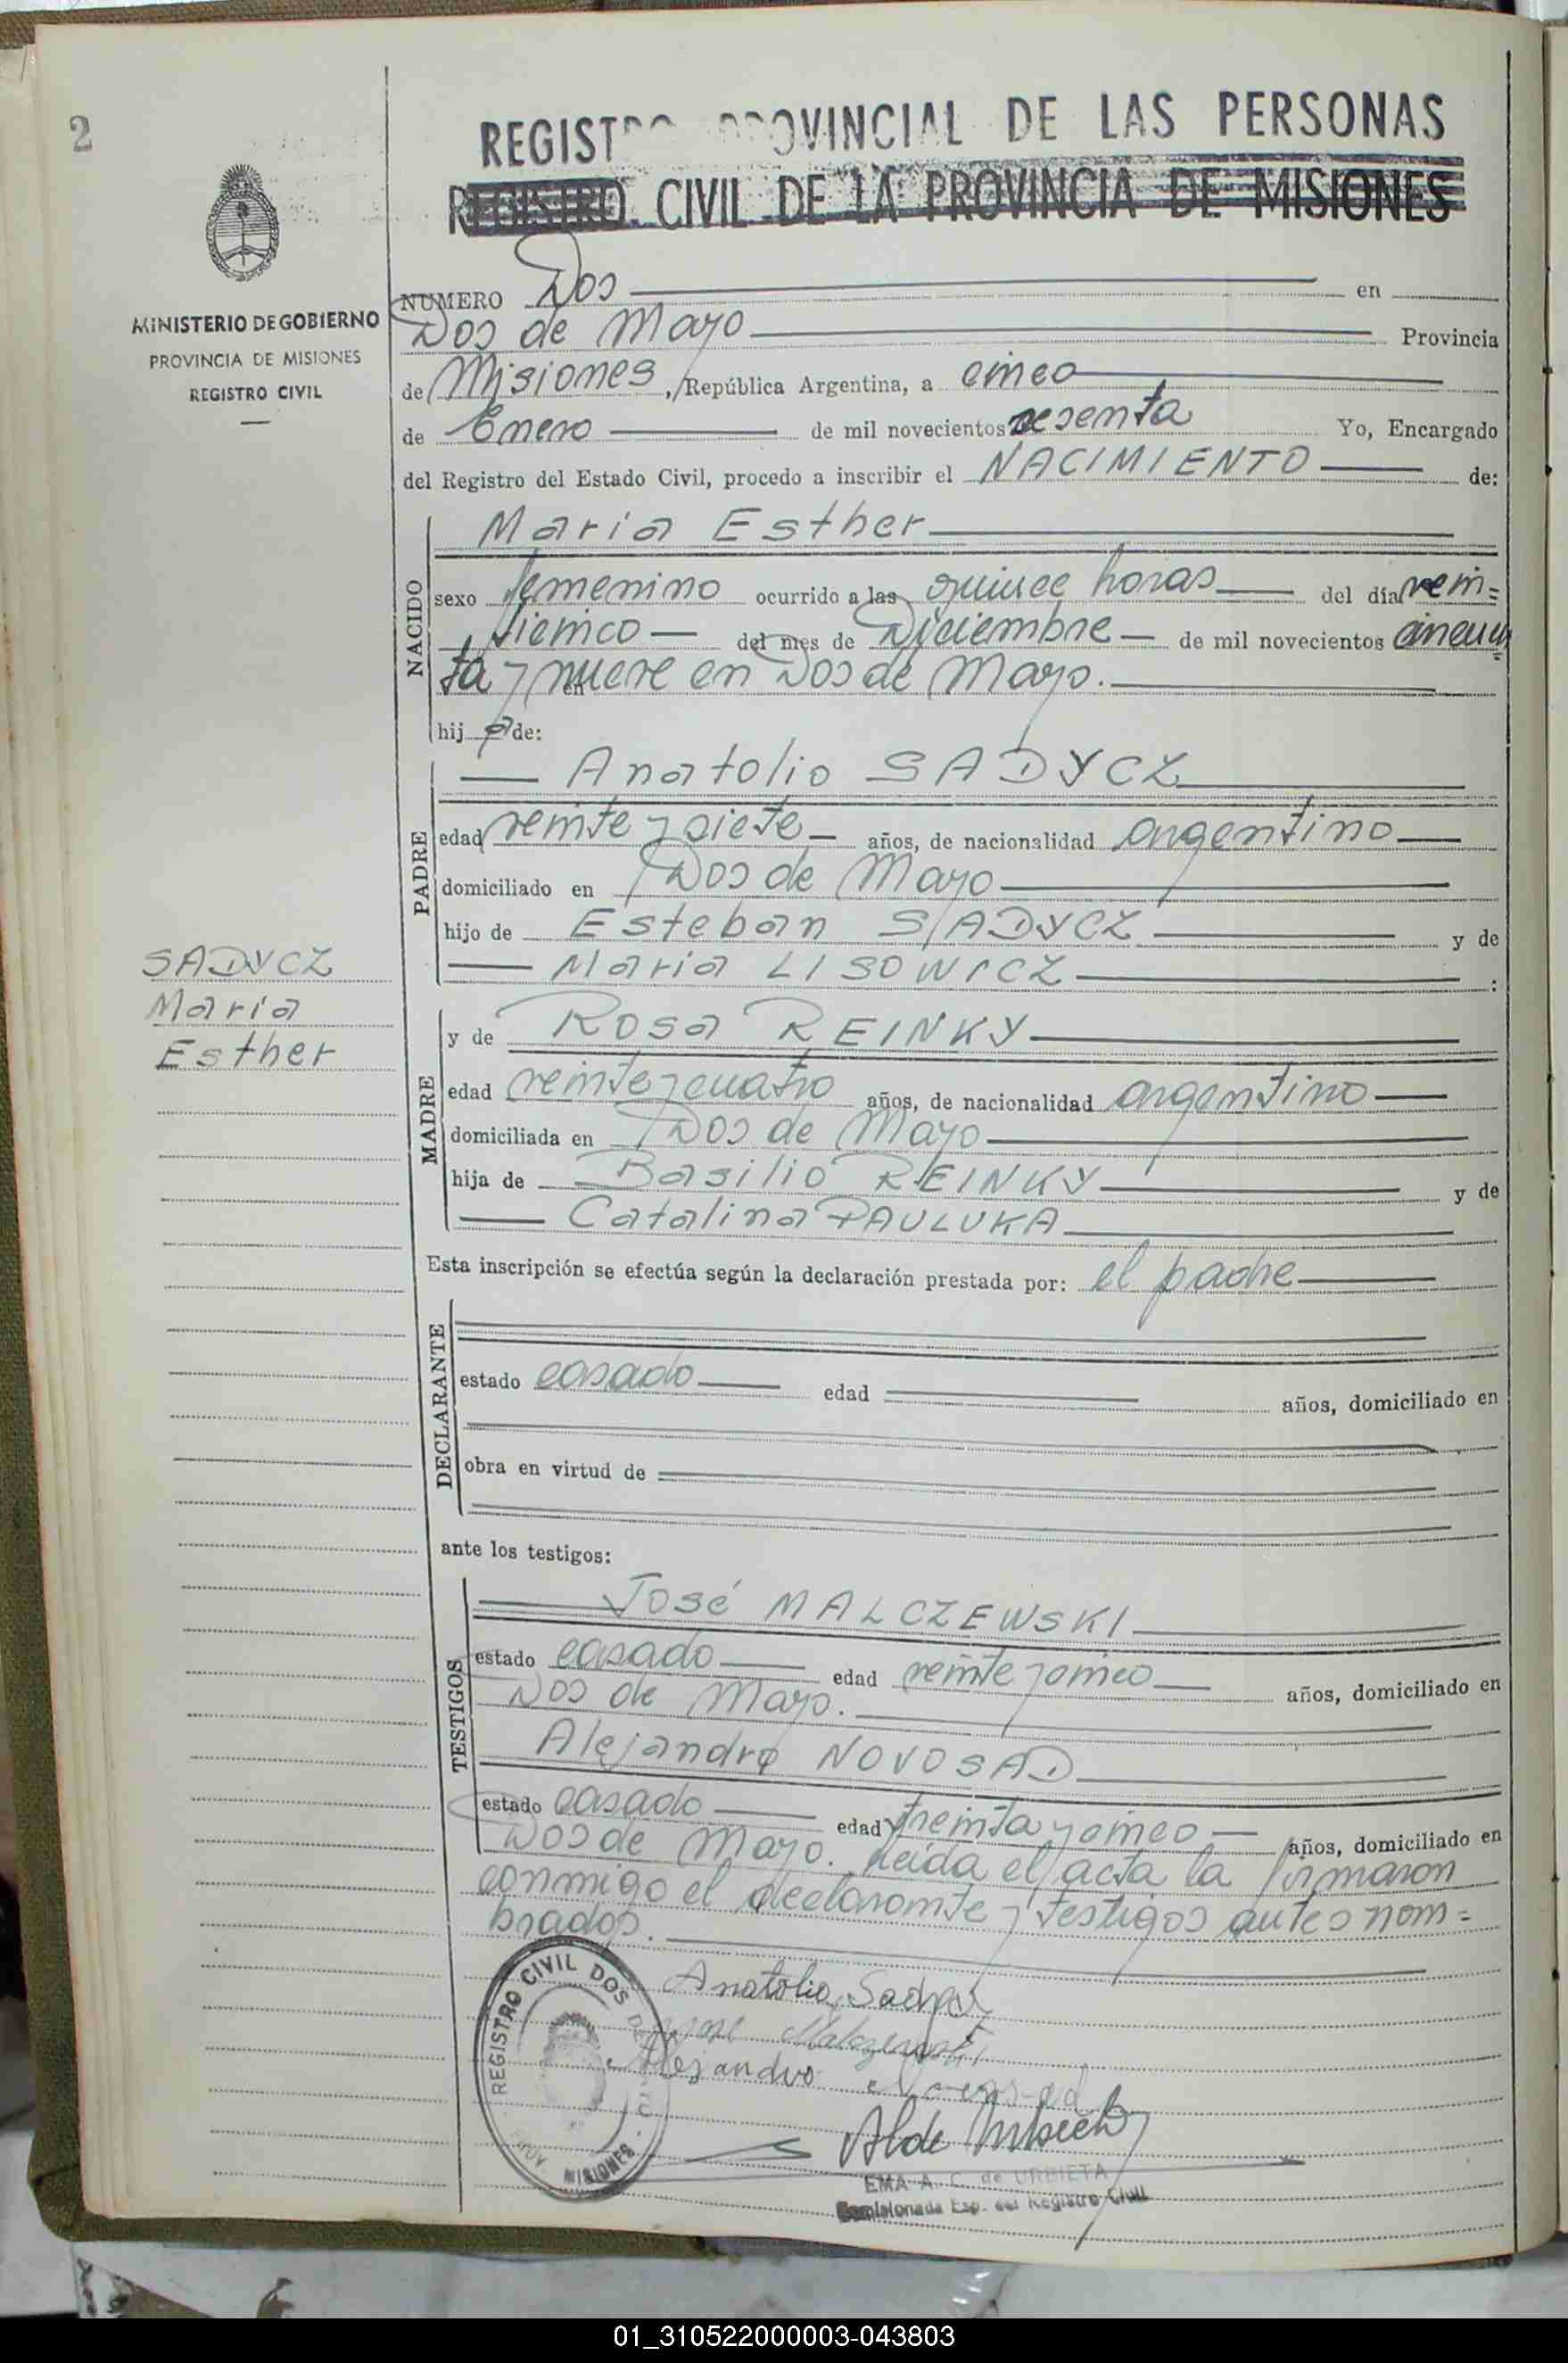 2
REGISTRO PROVINCIAL DE LAS PERSONAS
REGISTRO CIVIL DE LA PROVINCIA DE MISIONES
MINISTERIO DE GOBIERNO
PROVINCIA DE MISIONES
REGISTRO CIVIL
NUMERO Dos en
Dos de Mayo Provincia
de Misiones, República Argentina, a cinco
de Enero de mil novecientos sesenta Yo, Encargado
del Registro del Estado Civil, procedo a inscribir el NACIMIENTO de:
NACIDO
Maria Esther
sexo femenino ocurrido a las quince horas del día vein=
ticinco del mes de Diciembre de mil novecientos cincuen
ta y nueve en Dos de Mayo.
hija de:
PADRE
Anatolio SADYCZ
edad veinte y siete años, de nacionalidad argentino
domiciliado en Dos de Mayo
hijo de Esteban SADYCZ y de
Maria LISOWICZ :
SADYCZ
Maria
Esther
MADRE
y de Rosa REINKY
edad veinte y cuatro años, de nacionalidad argentino
domiciliada en Dos de Mayo
hija de Basilio REINKY y de
Catalina PAULUKA
Esta inscripción se efectúa según la declaración prestada por: el padre
DECLARANTE
estado casado edad años, domiciliado en
obra en virtud de
ante los testigos:
TESTIGOS
José MALCZEWSKI
estado casado edad veinte y cinco años, domiciliado en
Dos de Mayo.
Alejandro NOVOSAD
estado casado edad treinta y cinco años, domiciliado en
Dos de Mayo. Leída el acta la firmaron
conmigo el declarante y testigos antes nom=
brados.
REGISTRO CIVIL DOS DE MAYO
MISIONES
Anatolio Sadycz
José Malczewski
Alejandro Novosad
EMA A. C. de URBIETA
Comisionada Esp. del Registro Civil
01_310522000003-043803